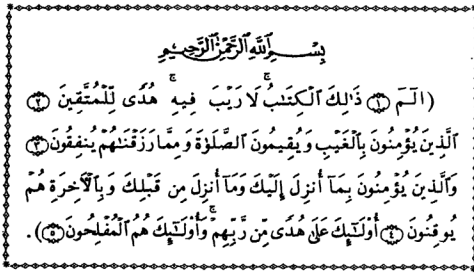 بِسْمِ اللَّهِ الرَّحْمَٰنِ الرَّحِيمِ
(الٓمٓ ۝١ ذَٰلِكَ الْكِتَٰبُ ۛ لَا رَيْبَ فِيهِ ۛ هُدًى لِّلْمُتَّقِينَ ۝٢
الَّذِينَ يُؤْمِنُونَ بِالْغَيْبِ وَيُقِيمُونَ الصَّلَوٰةَ وَمِمَّا رَزَقْنَاهُمْ يُنفِقُونَ ۝٣
وَالَّذِينَ يُؤْمِنُونَ بِمَآ أُنزِلَ إِلَيْكَ وَمَآ أُنزِلَ مِن قَبْلِكَ وَبِالْآخِرَةِ هُمْ
يُوقِنُونَ ۝٤ أُوْلَٰٓئِكَ عَلَىٰ هُدًى مِّن رَّبِّهِمْ ۖ وَأُوْلَٰٓئِكَ هُمُ الْمُفْلِحُونَ ۝٥).